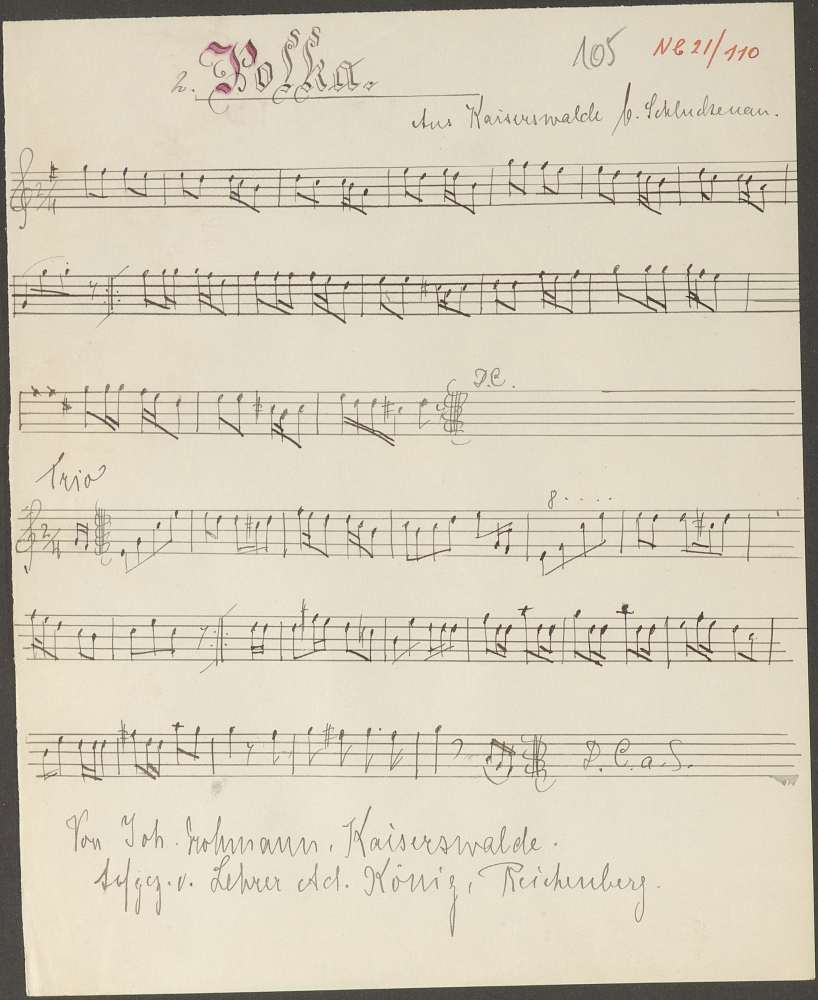 2. Polka.
105
NB 21/110
Aus Kaiserswalde b. Schluckenau.
2/4
D.C.
Trio
2/4
8....
D. C. a. S.
Von Joh. Frohmann, Kaiserswalde.
Aufgez. v. Lehrer Ad. König, Reichenberg.